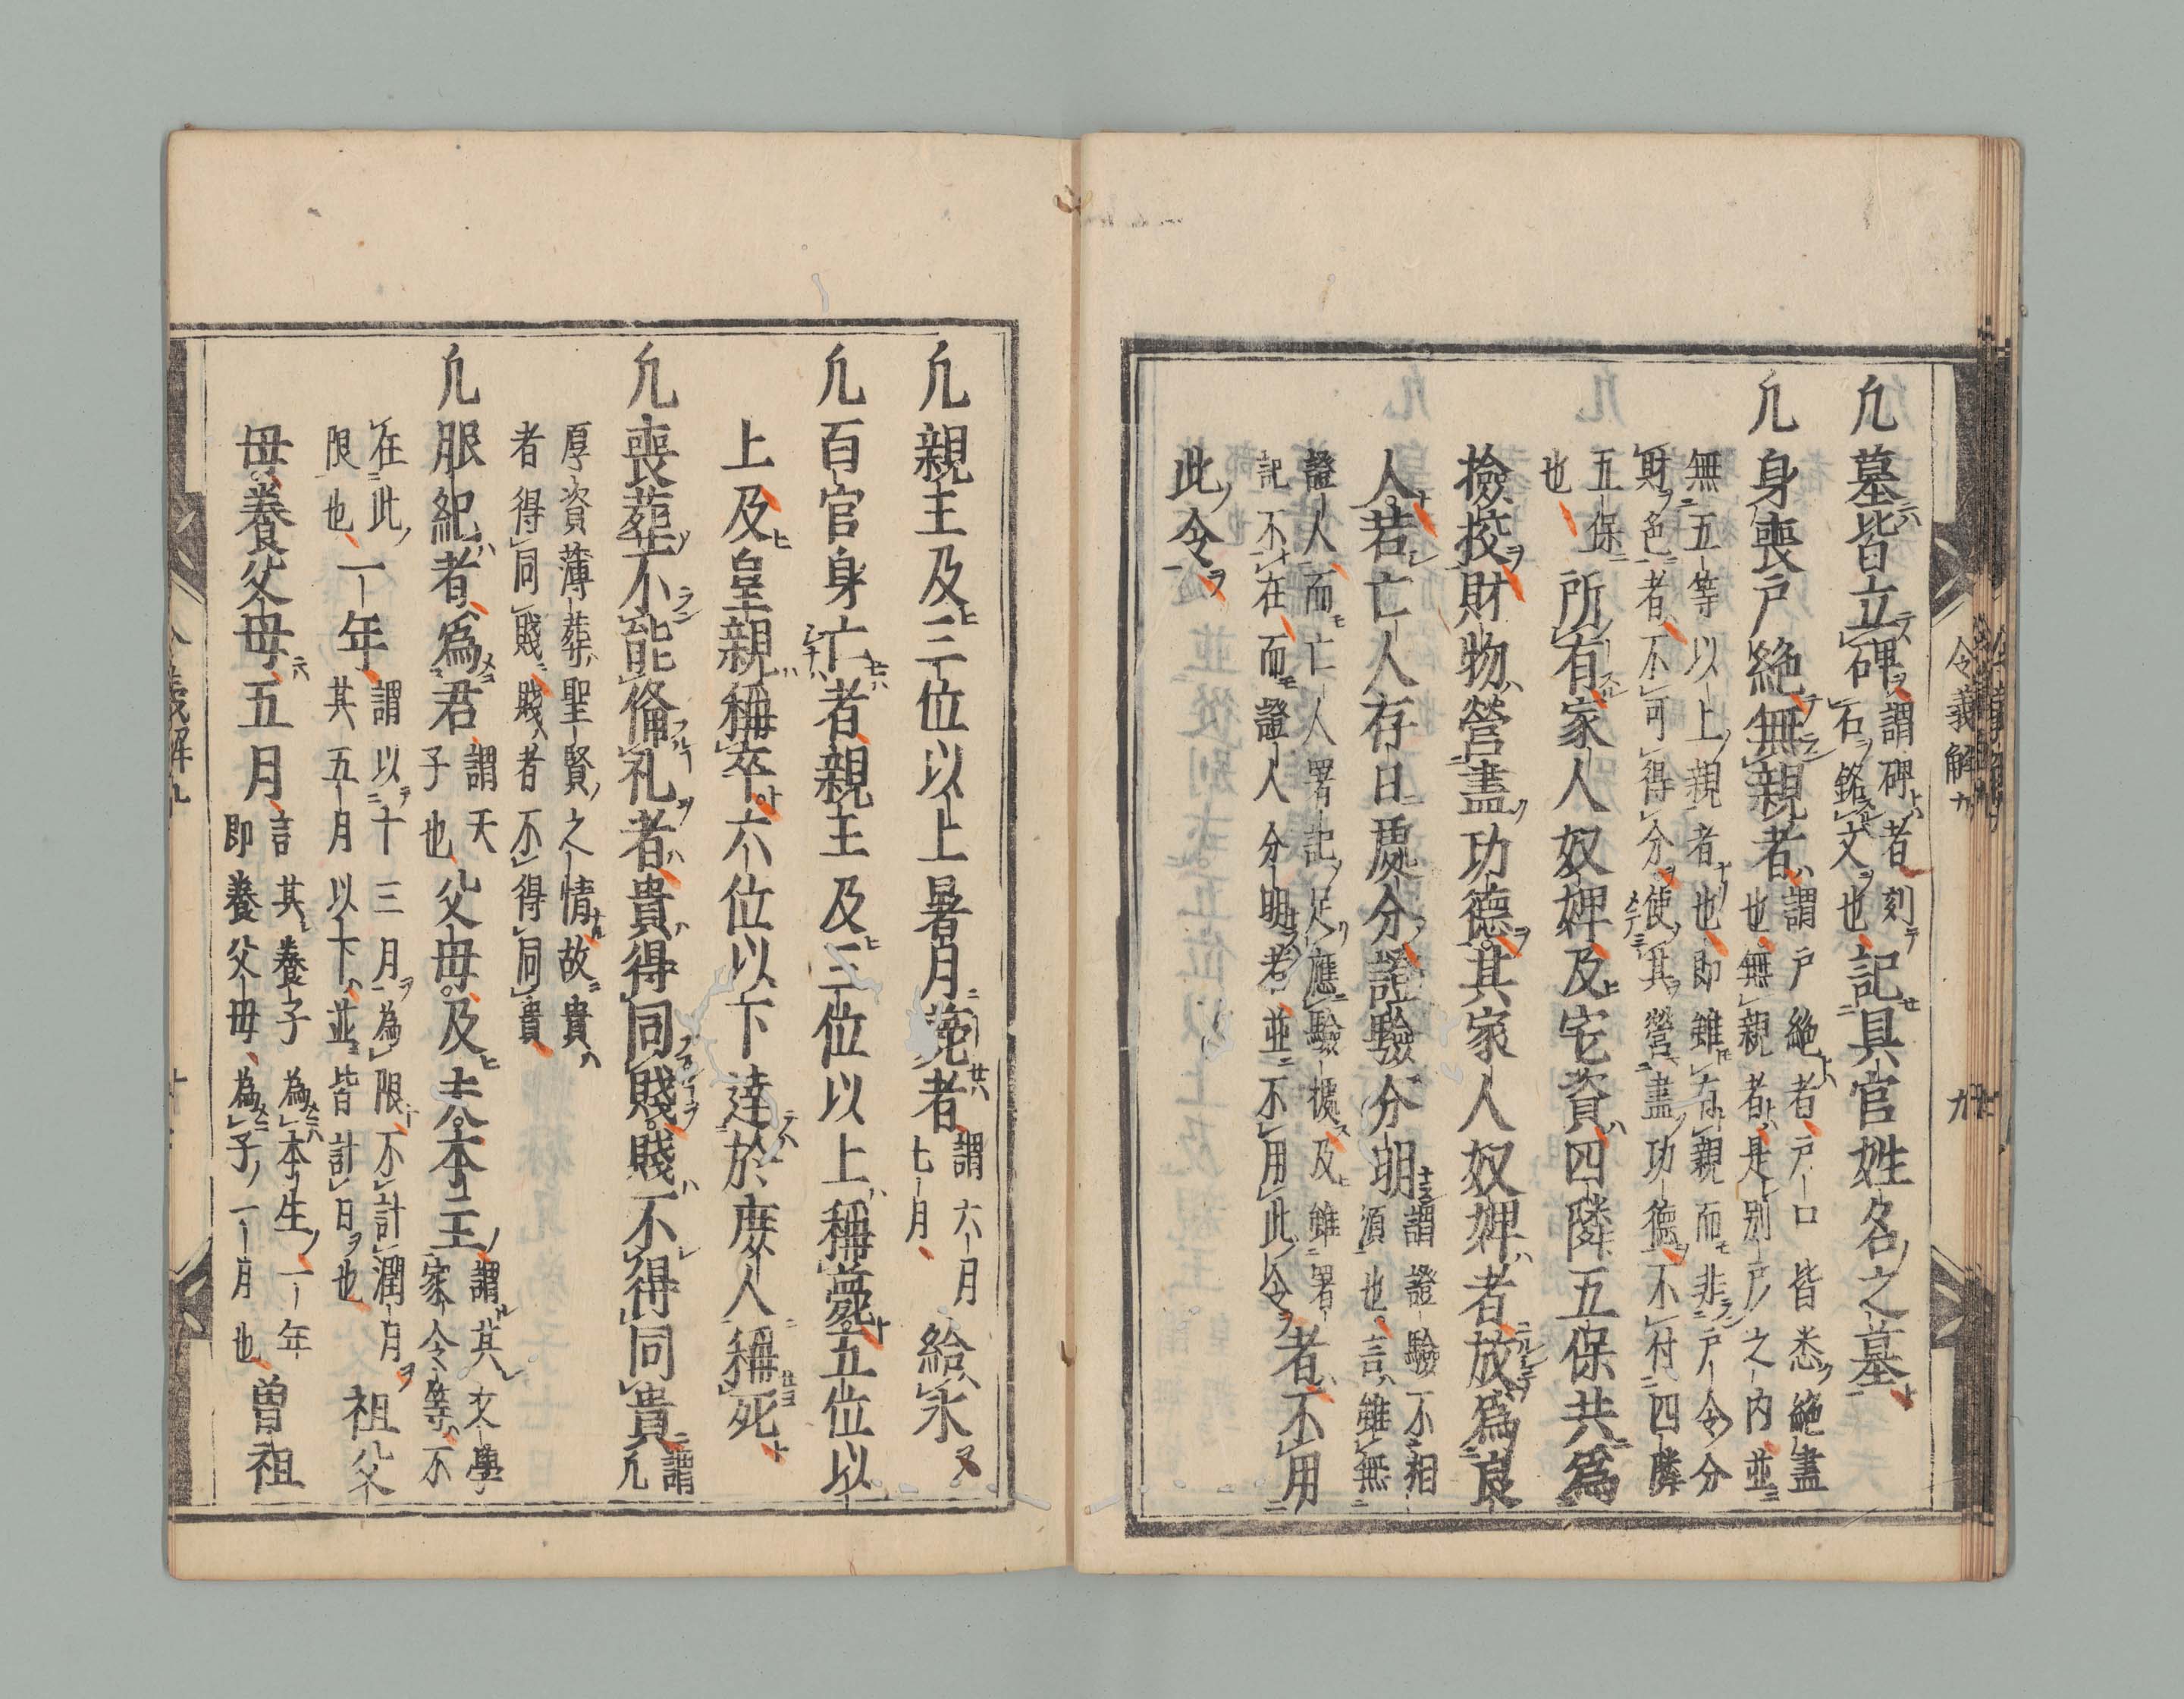 凢墓皆立碑謂碑者刻石銘文也記具官姓名之墓
凢身喪戸絶無親者謂戸絶者戸口皆悉絶盡也無親者是別戸之内並
無五等以上親者也即雖有親而非戸令分財色者不可得分使其營盡功徳不付四隣
五保也所有家人奴婢及宅資四隣五保共爲
撿挍財物營盡功徳其家人奴婢者放爲良
人若亡人存日處分證驗分明謂證驗不相須也言雖無
證人而亡人署記足應驗據及雖署記不在而證人分明者並不用此令者不用
此令
令義解九
凢親王及三位以上暑月薨者謂六月七月給氷
凢百官身亡者親王及三位以上稱薨五位以
上及皇親稱卒六位以下達於庶人稱死
凢喪葬不能備礼者貴得同賤賤不得同貴謂凢
厚資薄葬聖賢之情故貴者得同賤賤者不得同貴
凢服紀者爲君謂天子也父母及夫本主謂其文學家令等不
在此限也一年謂以十三月為限不計潤月其五月以下並皆計日也祖父
母養父母五月言其養子為本生一年即養父母為子一月也曽祖